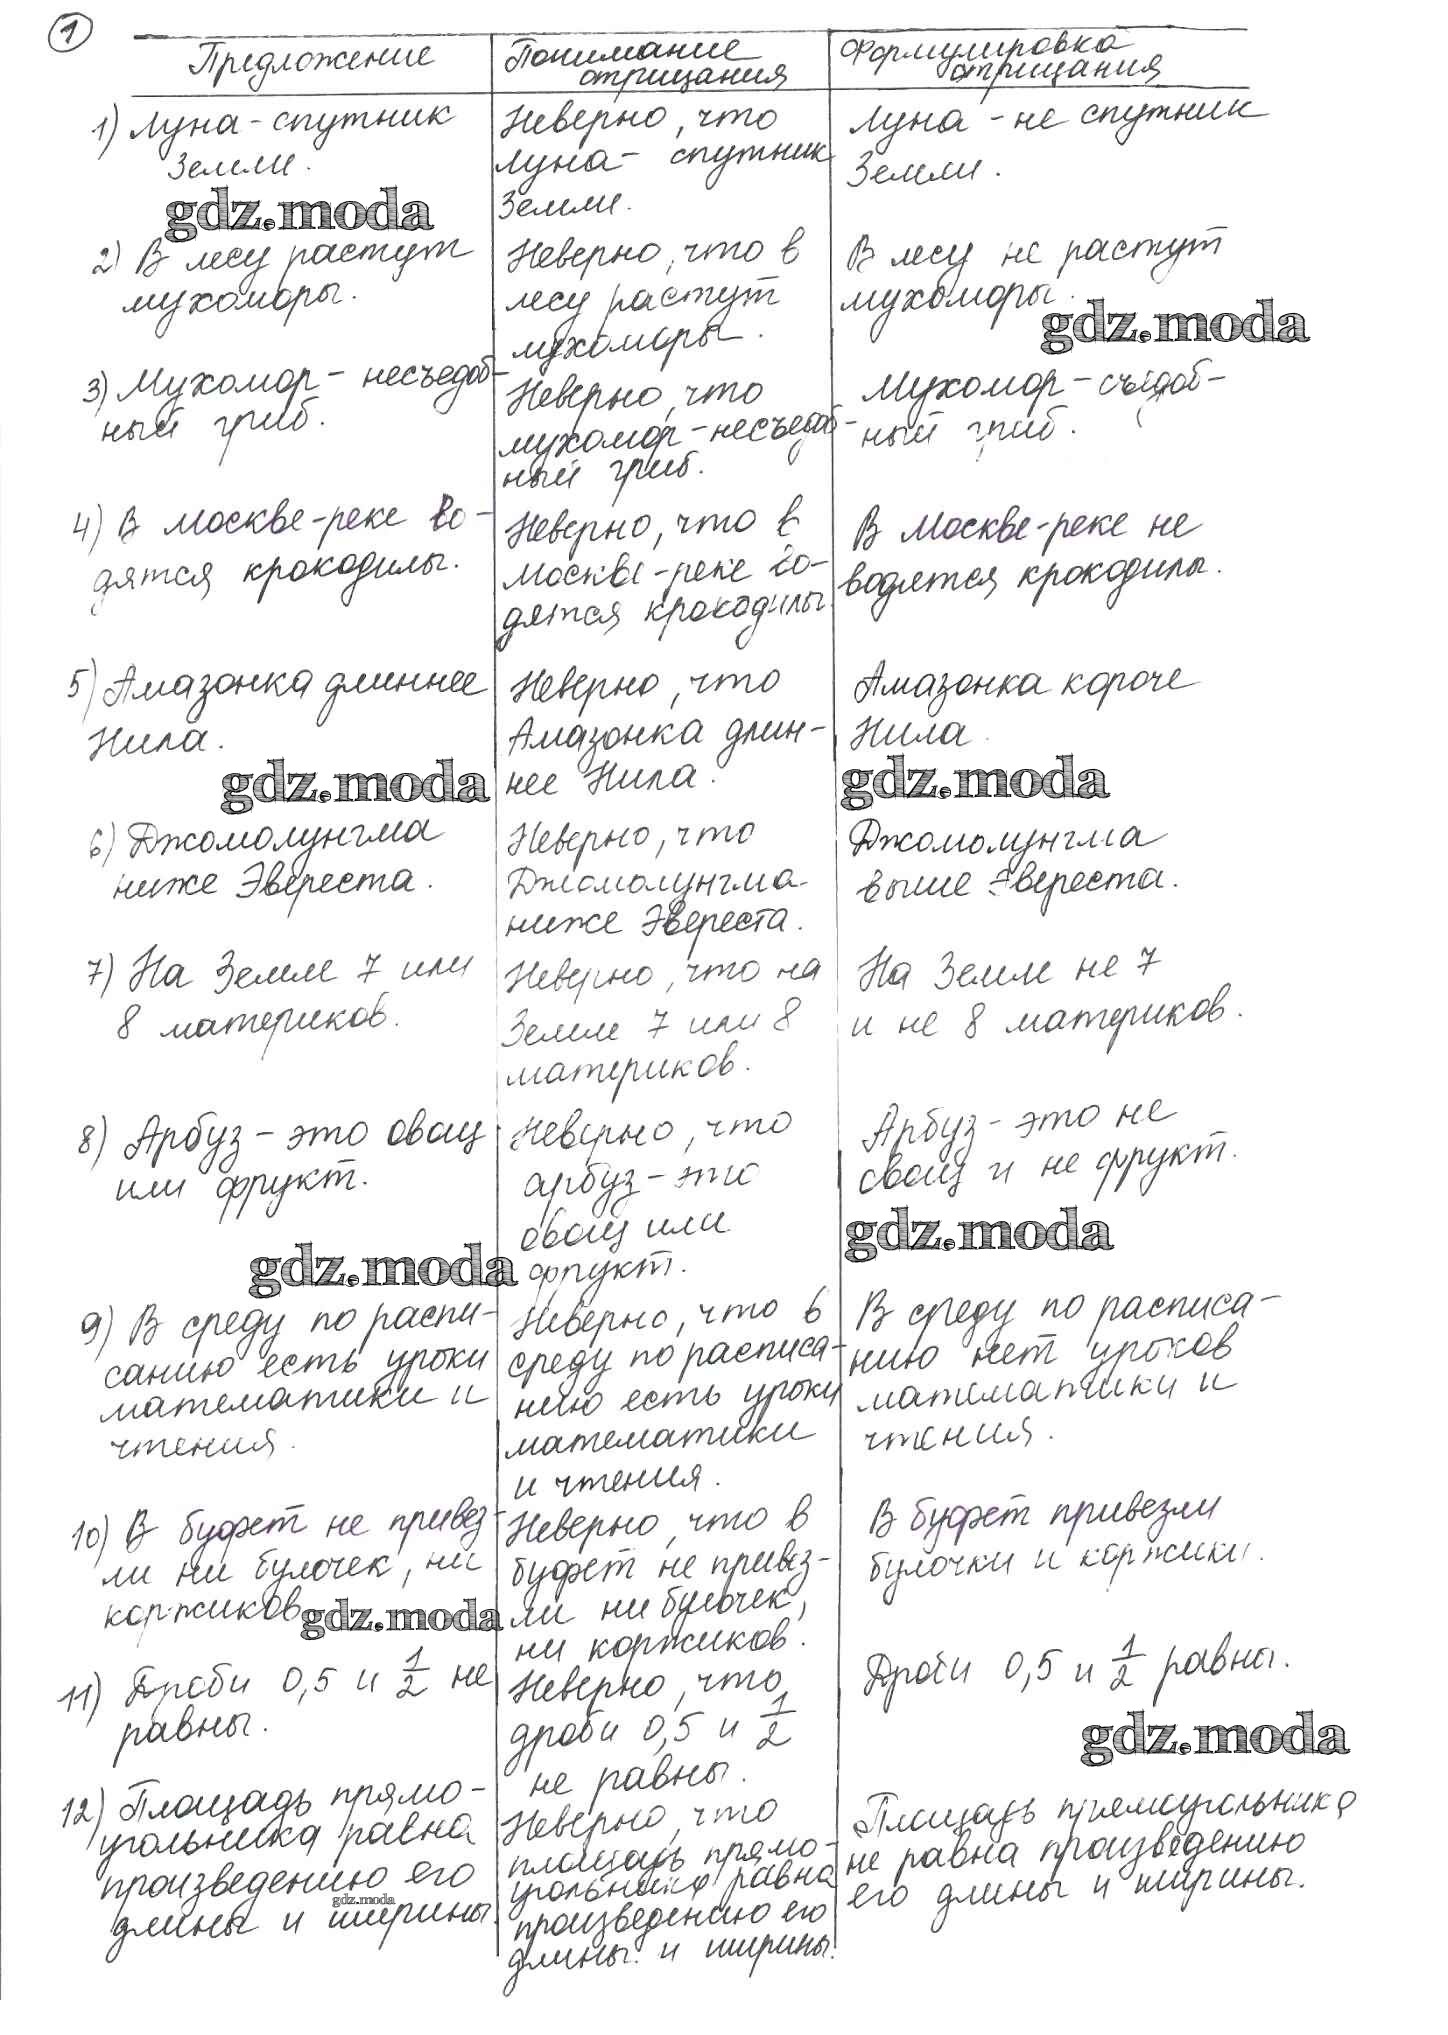 1
Предложение
Понимание
отрицания
Формулировка
отрицания
1) Луна - спутник
Земли.
Неверно, что
Луна - спутник
Земли.
Луна - не спутник
Земли.
gdz.moda
2) В лесу растут
мухоморы.
Неверно, что в
лесу растут
мухоморы.
В лесу не растут
мухоморы.
gdz.moda
3) Мухомор - несъедоб-
ный гриб.
Неверно, что
мухомор - несъедоб-
ный гриб.
Мухомор - съедоб-
ный гриб.
4) В Москве-реке во-
дятся крокодилы.
Неверно, что в
Москве-реке во-
дятся крокодилы
В Москве-реке не
водятся крокодилы.
5) Амазонка длиннее
Нила.
Неверно, что
Амазонка длин-
нее Нила.
Амазонка короче
Нила.
gdz.moda
gdz.moda
6) Джомолунгма
ниже Эвереста.
Неверно, что
Джомолунгма
ниже Эвереста.
Джомолунгма
выше Эвереста.
7) На Земле 7 или
8 материков.
Неверно, что на
Земле 7 или 8
материков.
На Земле не 7
и не 8 материков.
8) Арбуз - это овощ
или фрукт.
Неверно, что
арбуз - это
овощ или
фрукт.
Арбуз - это не
овощ и не фрукт.
gdz.moda
gdz.moda
9) В среду по распи-
санию есть уроки
математики и
чтения.
Неверно, что в
среду по расписа-
нию есть уроки
математики
и чтения.
В среду по расписа-
нию нет уроков
математики и
чтения.
10) В буфет не привез-
ли ни булочек, ни
коржиков
gdz.moda
Неверно, что в
буфет не привез-
ли ни булочек,
ни коржиков.
В буфет привезли
булочки и коржики.
11) Дроби 0,5 и 1/2 не
равны.
Неверно, что
дроби 0,5 и 1/2
не равны.
Дроби 0,5 и 1/2 равны.
gdz.moda
12) Площадь прямо-
угольника равна
произведению его
gdz.moda
длины и ширины.
Неверно, что
площадь прямо-
угольника равна
произведению его
длины и ширины.
Площадь прямоугольника
не равна произведению
его длины и ширины.